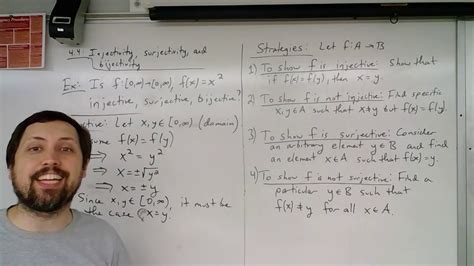 4.4 Injectivity, surjectivity, and
bijectivity
Ex: Is f:[0,∞)→[0,∞), f(x)=x²
injective, surjective, bijective?
ective: Let x,y∈[0,∞) (domain)
ssume f(x)=f(y)
⟹ x²=y²
⟹ x=±√y²
⟹ x=±y
Since x,y∈[0,∞), it must be
the case x=y.
Strategies: Let f:A→B
1) To show f is injective: Show that
if f(x)=f(y), then x=y.
2) To show f is not injective: Find specific
x,y∈A such that x≠y but f(x)=f(y).
3) To show f is surjective: Consider
an arbitrary element y∈B and find
an element x∈A such that f(x)=y.
4) To show f is not surjective: Find a
particular y∈B such that
f(x)≠y for all x∈A.